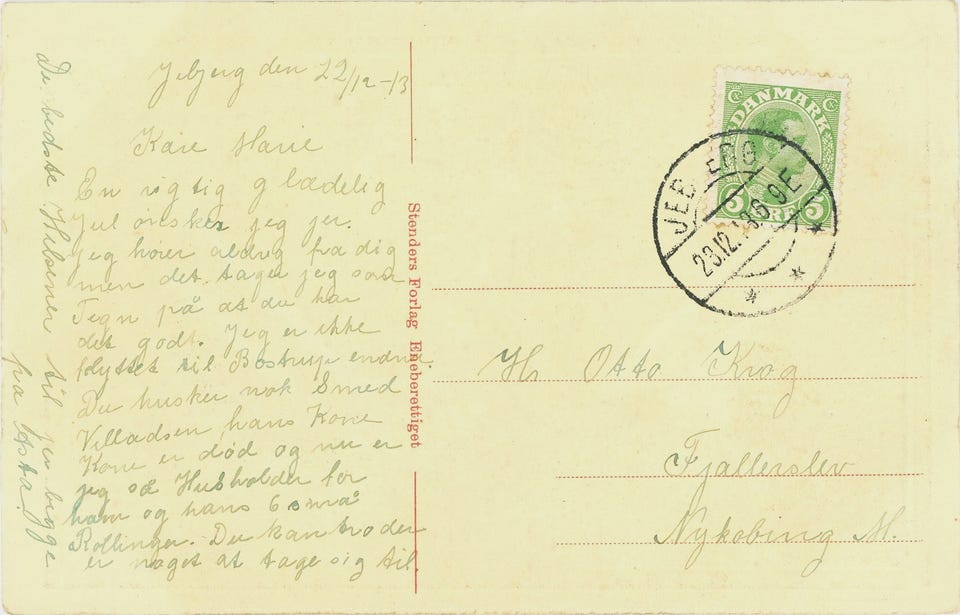 Jebjerg den 22/12-13
Kære Marie
En rigtig glædelig
Jul ønsker jeg jer.
Jeg hører aldrig fra dig
men det tager jeg som
Tegn på at du har
det godt. Jeg er ikke
flyttet til Bostrup endnu.
Du husker nok Smed
Villadsen, hans Kone
Kone er død og nu er
jeg så Husholder for
ham og hans 6 små
Rollinger. Du kan tro der
er noget at tage sig til.
De bedste Hilsener til jer begge
fra Asta.
Stenders Forlag Eneberettiget
DANMARK
5 ØRE 5
JEBJERG
23.12.13 6-9E
Hr Otto Krog
Fjallerslev
Nykøbing M.